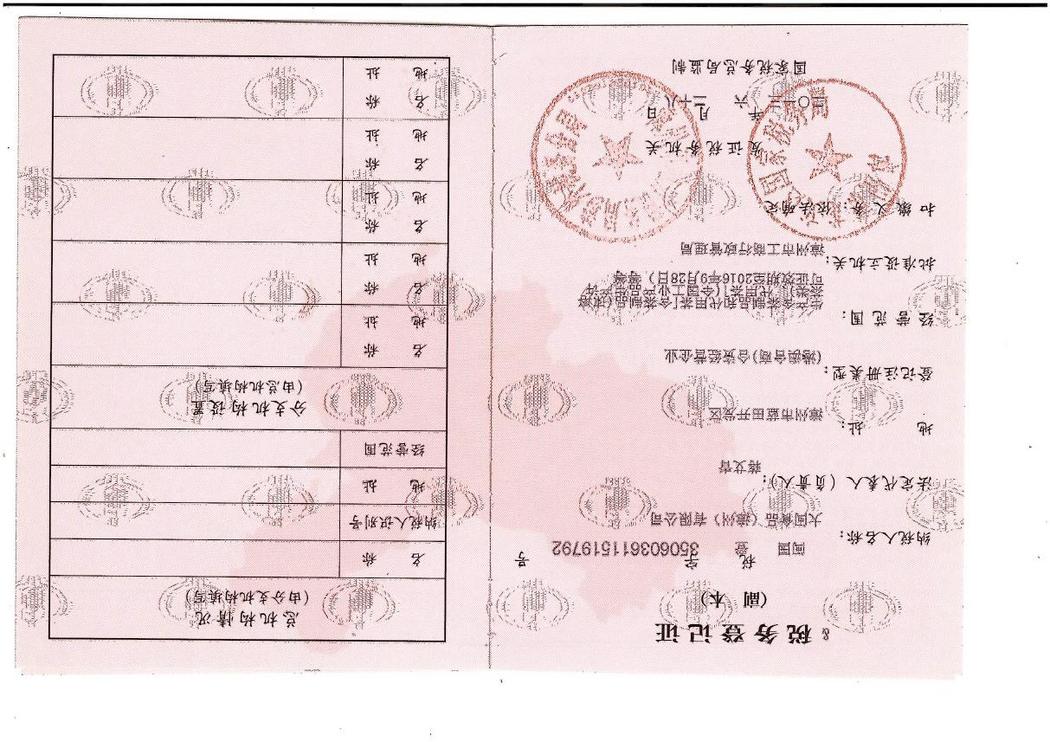 税务登记证
(副 本)
闽国 税 登 字 350603611519792 号
纳税人名称: 大闽食品 (漳州) 有限公司
法定代表人 (负责人):
地 址: 漳州市蓝田开发区
登记注册类型: (港澳台商)合资经营企业
经 营 范 围: 生产含茶制品和代用茶[含茶制品(速溶
茶类)、代用茶](全国工业产品生产许
可证有效期至2016年9月28日) 等等
批准设立机关: 漳州市工商行政管理局
扣 缴 义 务: 依法确定
发 证 税 务 机 关
二〇一三 年 六 月 二十八 日
国家税务总局监制
总 机 构 情 况
(由分支机构填写)
名 称
纳税人识别号
地 址
经营范围
分支机构设置
(由总机构填写)
名 称
地 址
名 称
地 址
名 称
地 址
名 称
地 址
名 称
地 址